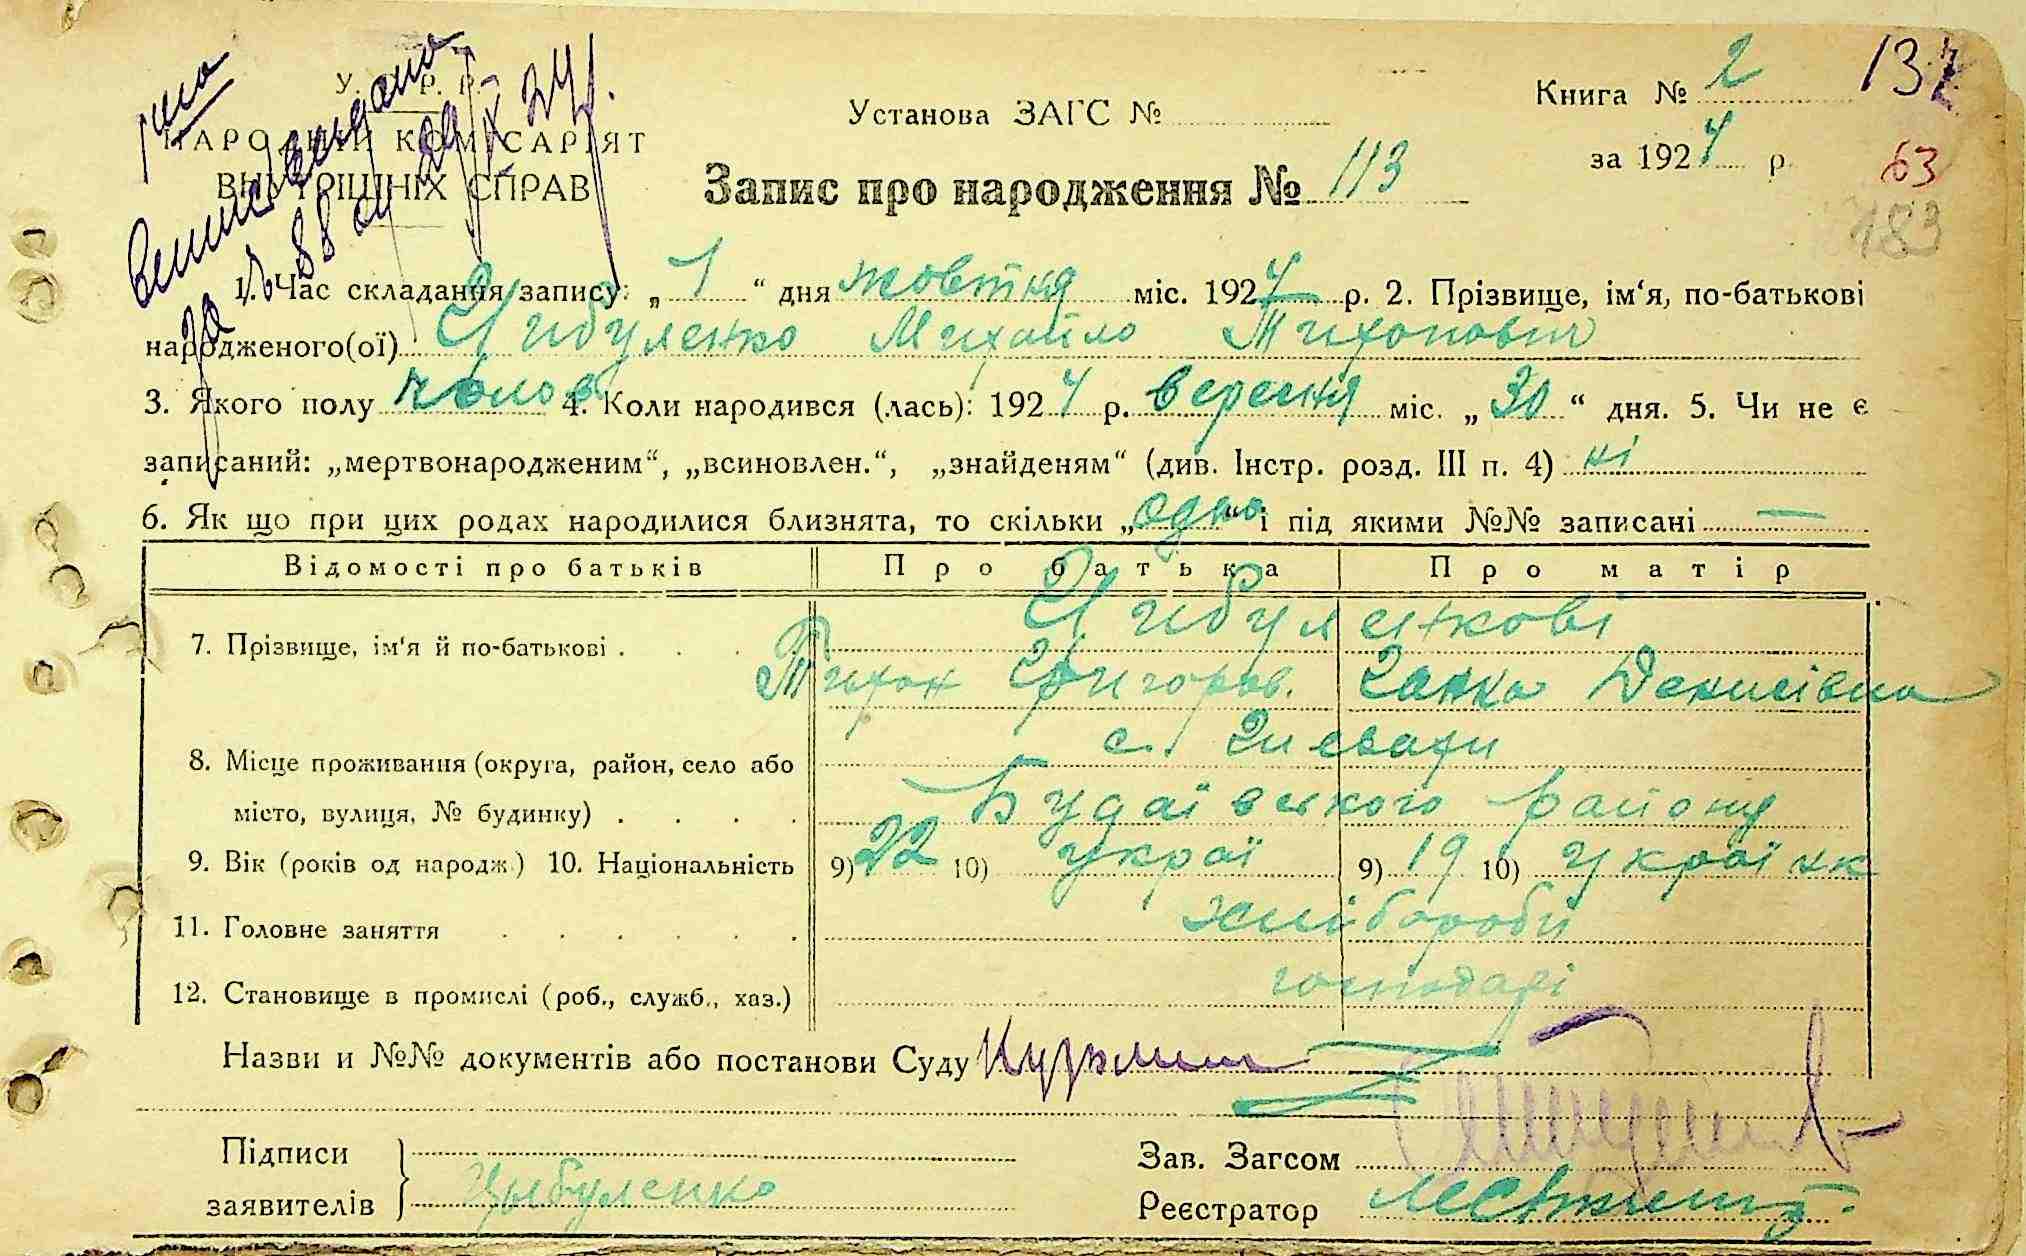 У. Р. Р.
НАРОДНІЙ КОМІСАРІЯТ
ВНУТРІШНІХ СПРАВ
29/X 24
Установа ЗАГС №
Книга № 2
132
за 1924 р.
63
183
Запис про народження № 113
1. Час складання запису: „1“ дня жовтня міс. 1924 р. 2. Прізвище, ім‘я, по-батькові
народженого(ої) Цибуленко Михайло Тихонович
3. Якого полу чолов 4. Коли народився (лась): 1924 р. вересня міс. „30“ дня. 5. Чи не є
записаний: „мертвонародженим“, „всиновлен.“, „знайденям“ (див. Інстр. розд. III п. 4) ні
6. Як що при цих родах народилися близнята, то скільки „одно“ і під якими №№ записані —
Відомості про батьків Про батька Про матір
Цибуленкові
7. Прізвище, ім‘я й по-батькові . . .
Тихон Григоров. Ганка Денисівна
8. Місце проживання (округа, район, село або
місто, вулиця, № будинку) . . . .
с.
Будаївського району
9. Вік (років од народж.) 10. Національність 9) 22 10) украї 9) 19 10) українк
11. Головне заняття . . . . . . хлібороби
12. Становище в промислі (роб., служб., хаз.) господарі
Назви и №№ документів або постанови Суду
Підписи
заявителів
Цыбуленко
Зав. Загсом
Реєстратор